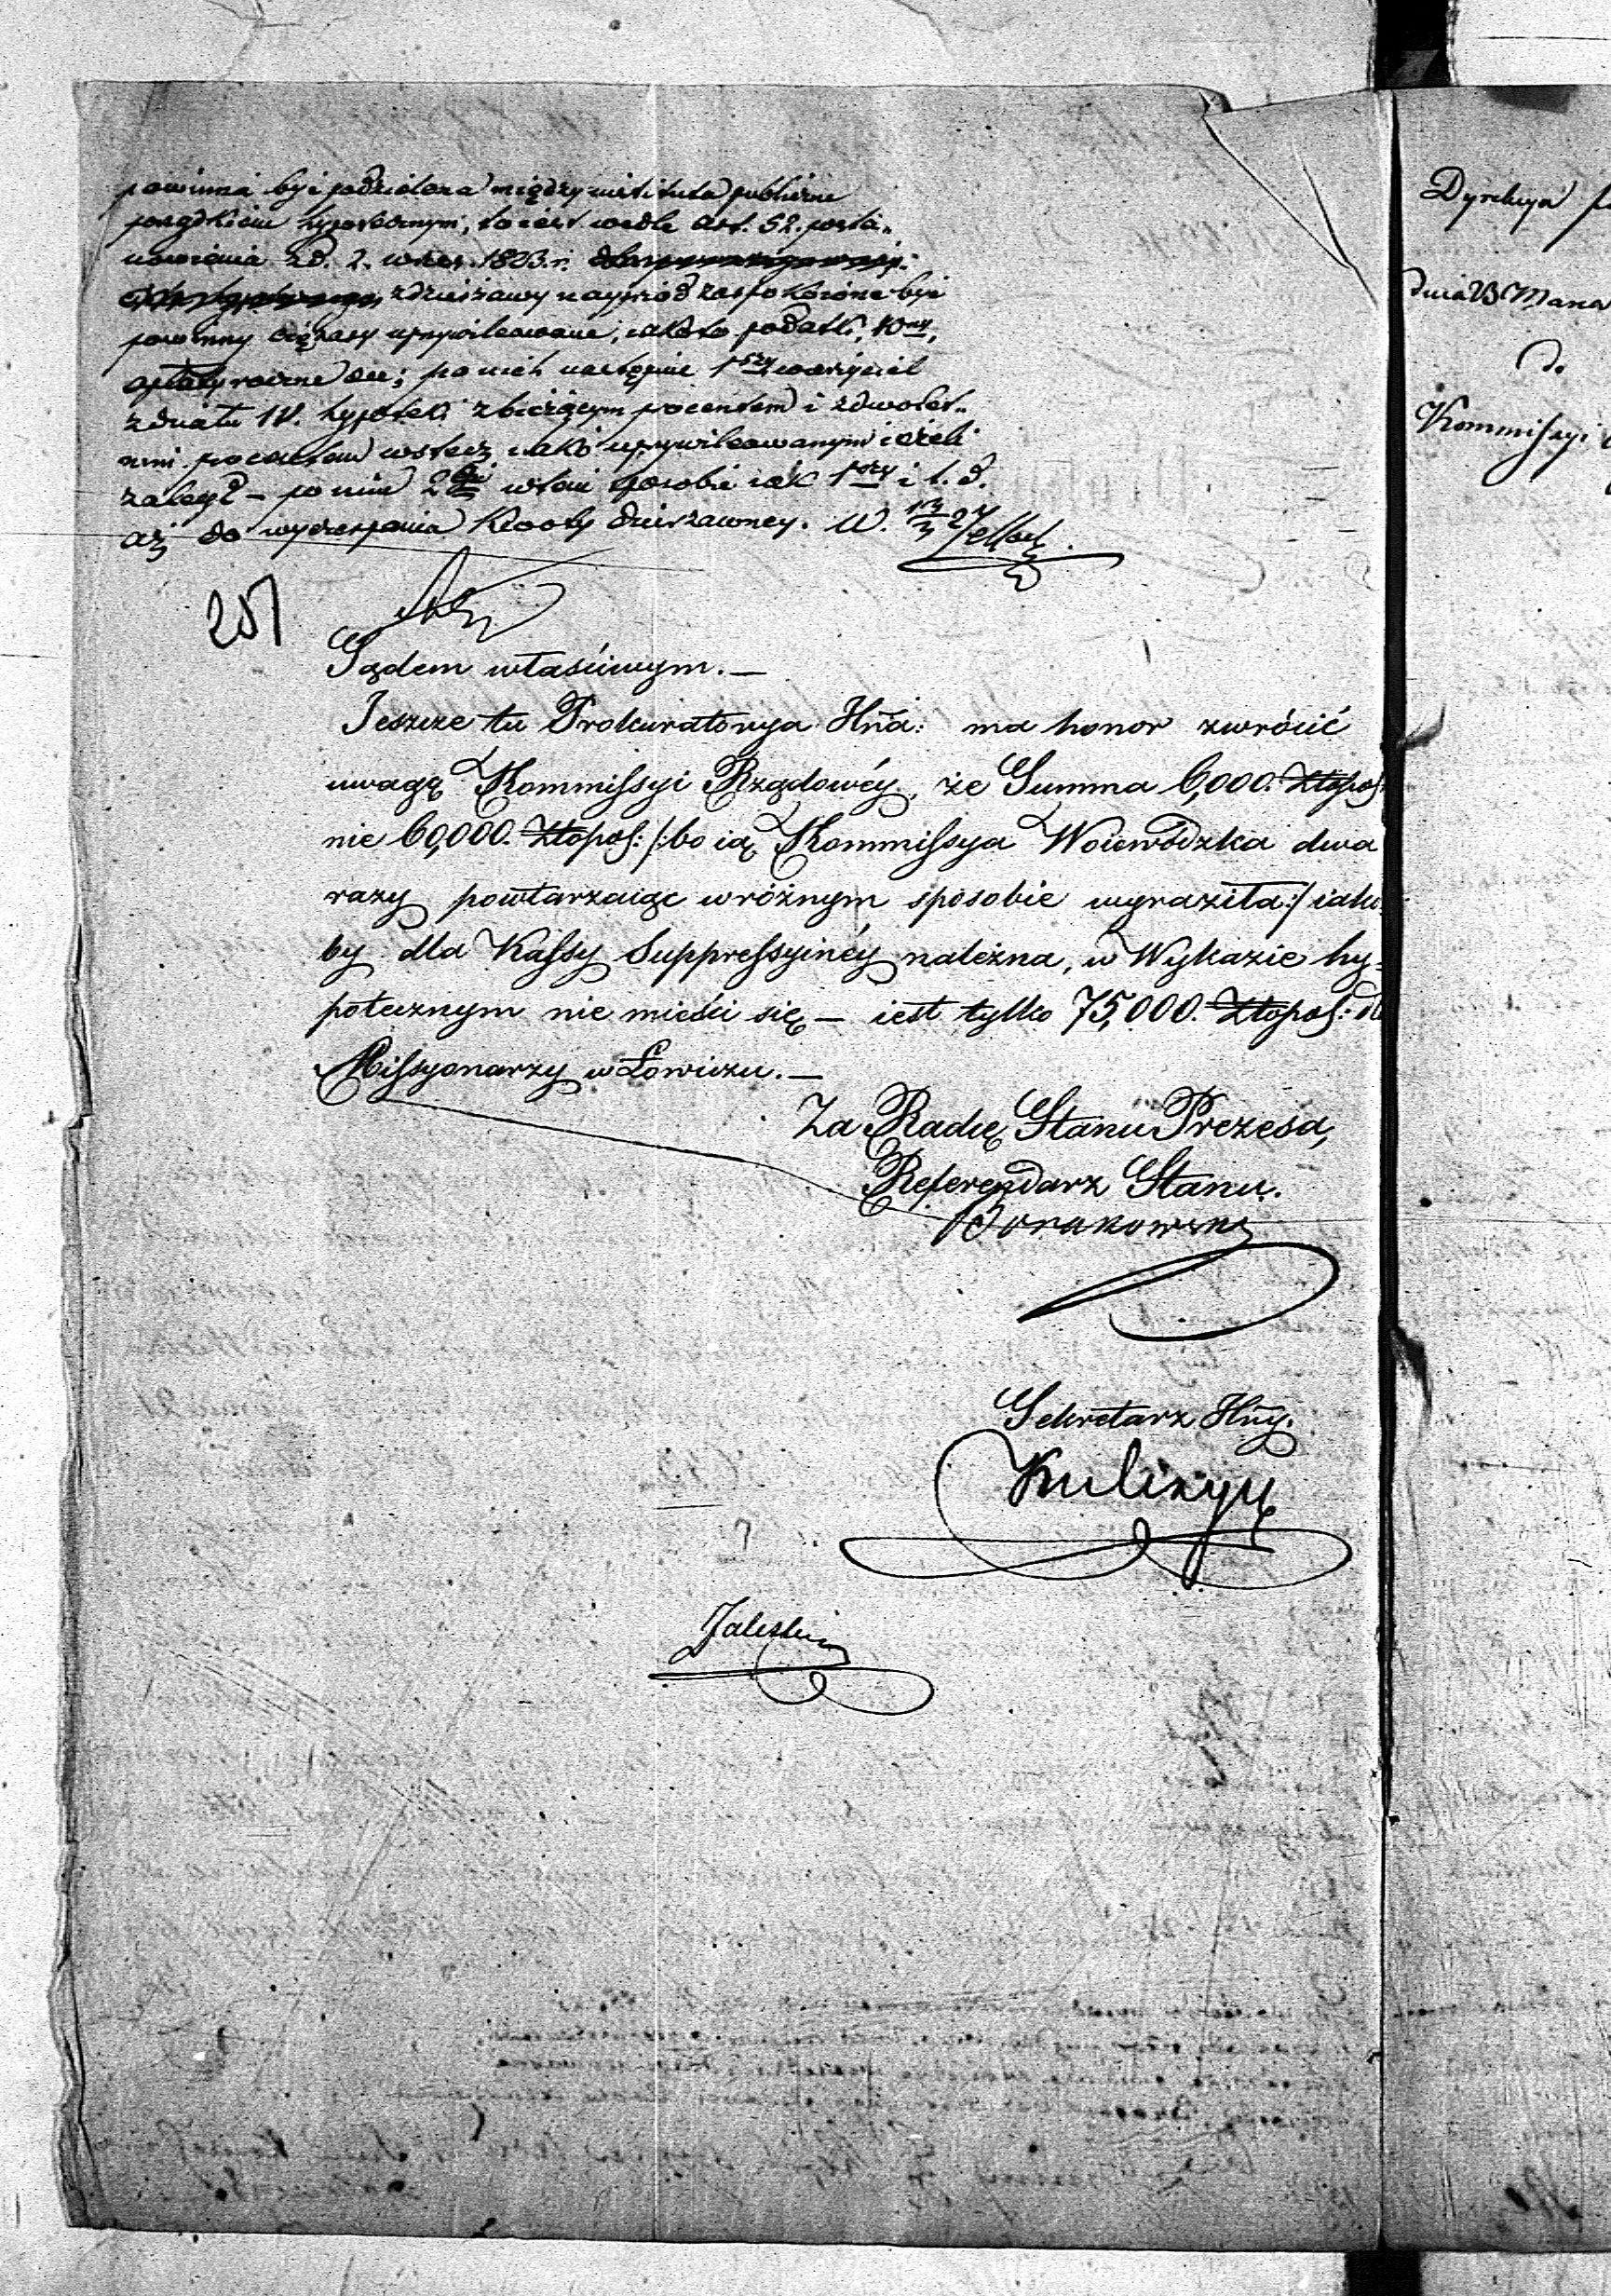 powinna być podzielona między instituta publiczne
porządkiem hypotecznym, to iest wedle Art. 52. posta„
nowienia z d. 2. wrześ. 1823. r.
z dzierżawy naprzód zaspokoióne być
powinny ciężary uprzywileiowane, iakoto podatki, 10ny,
opłaty roczne etc; po nich następnie 1szy wierzyciel
z działu IV. hypoteki z bieżącym procentem i z dwolet„
nim procentem wstecz iako uprzywileiowanym ieżeli
zaległ – po nim 2gi w tym sposobie iak 1szy i t. d.
aż do wyczerpania kwoty dzierżawney.
251
Sądem właściwym. —
Jeszcze tu Prokuratorya Hńa: ma honor zwrócić
uwagę Kommissyi Rządowéy, że Summa 6,000. Złopol:
nie 60,000. Złopol: /: bo ią Kommissya Woiewódzka dwa
razy powtarzaiąc w różnym sposobie wyraziła :/ iako
by dla Kassy Suppressyinéy należna, w Wykazie hy„
potecznym nie mieści się — iest tylko 75,000. Złopol: dla
Missyonarzy w Łowiczu. —
Za Radcę Stanu Prezesa,
Referendarz Stanu.
Sekretarz Hńy.
Dyrekcya
dnia 23 Marca
Do
Kommissyi